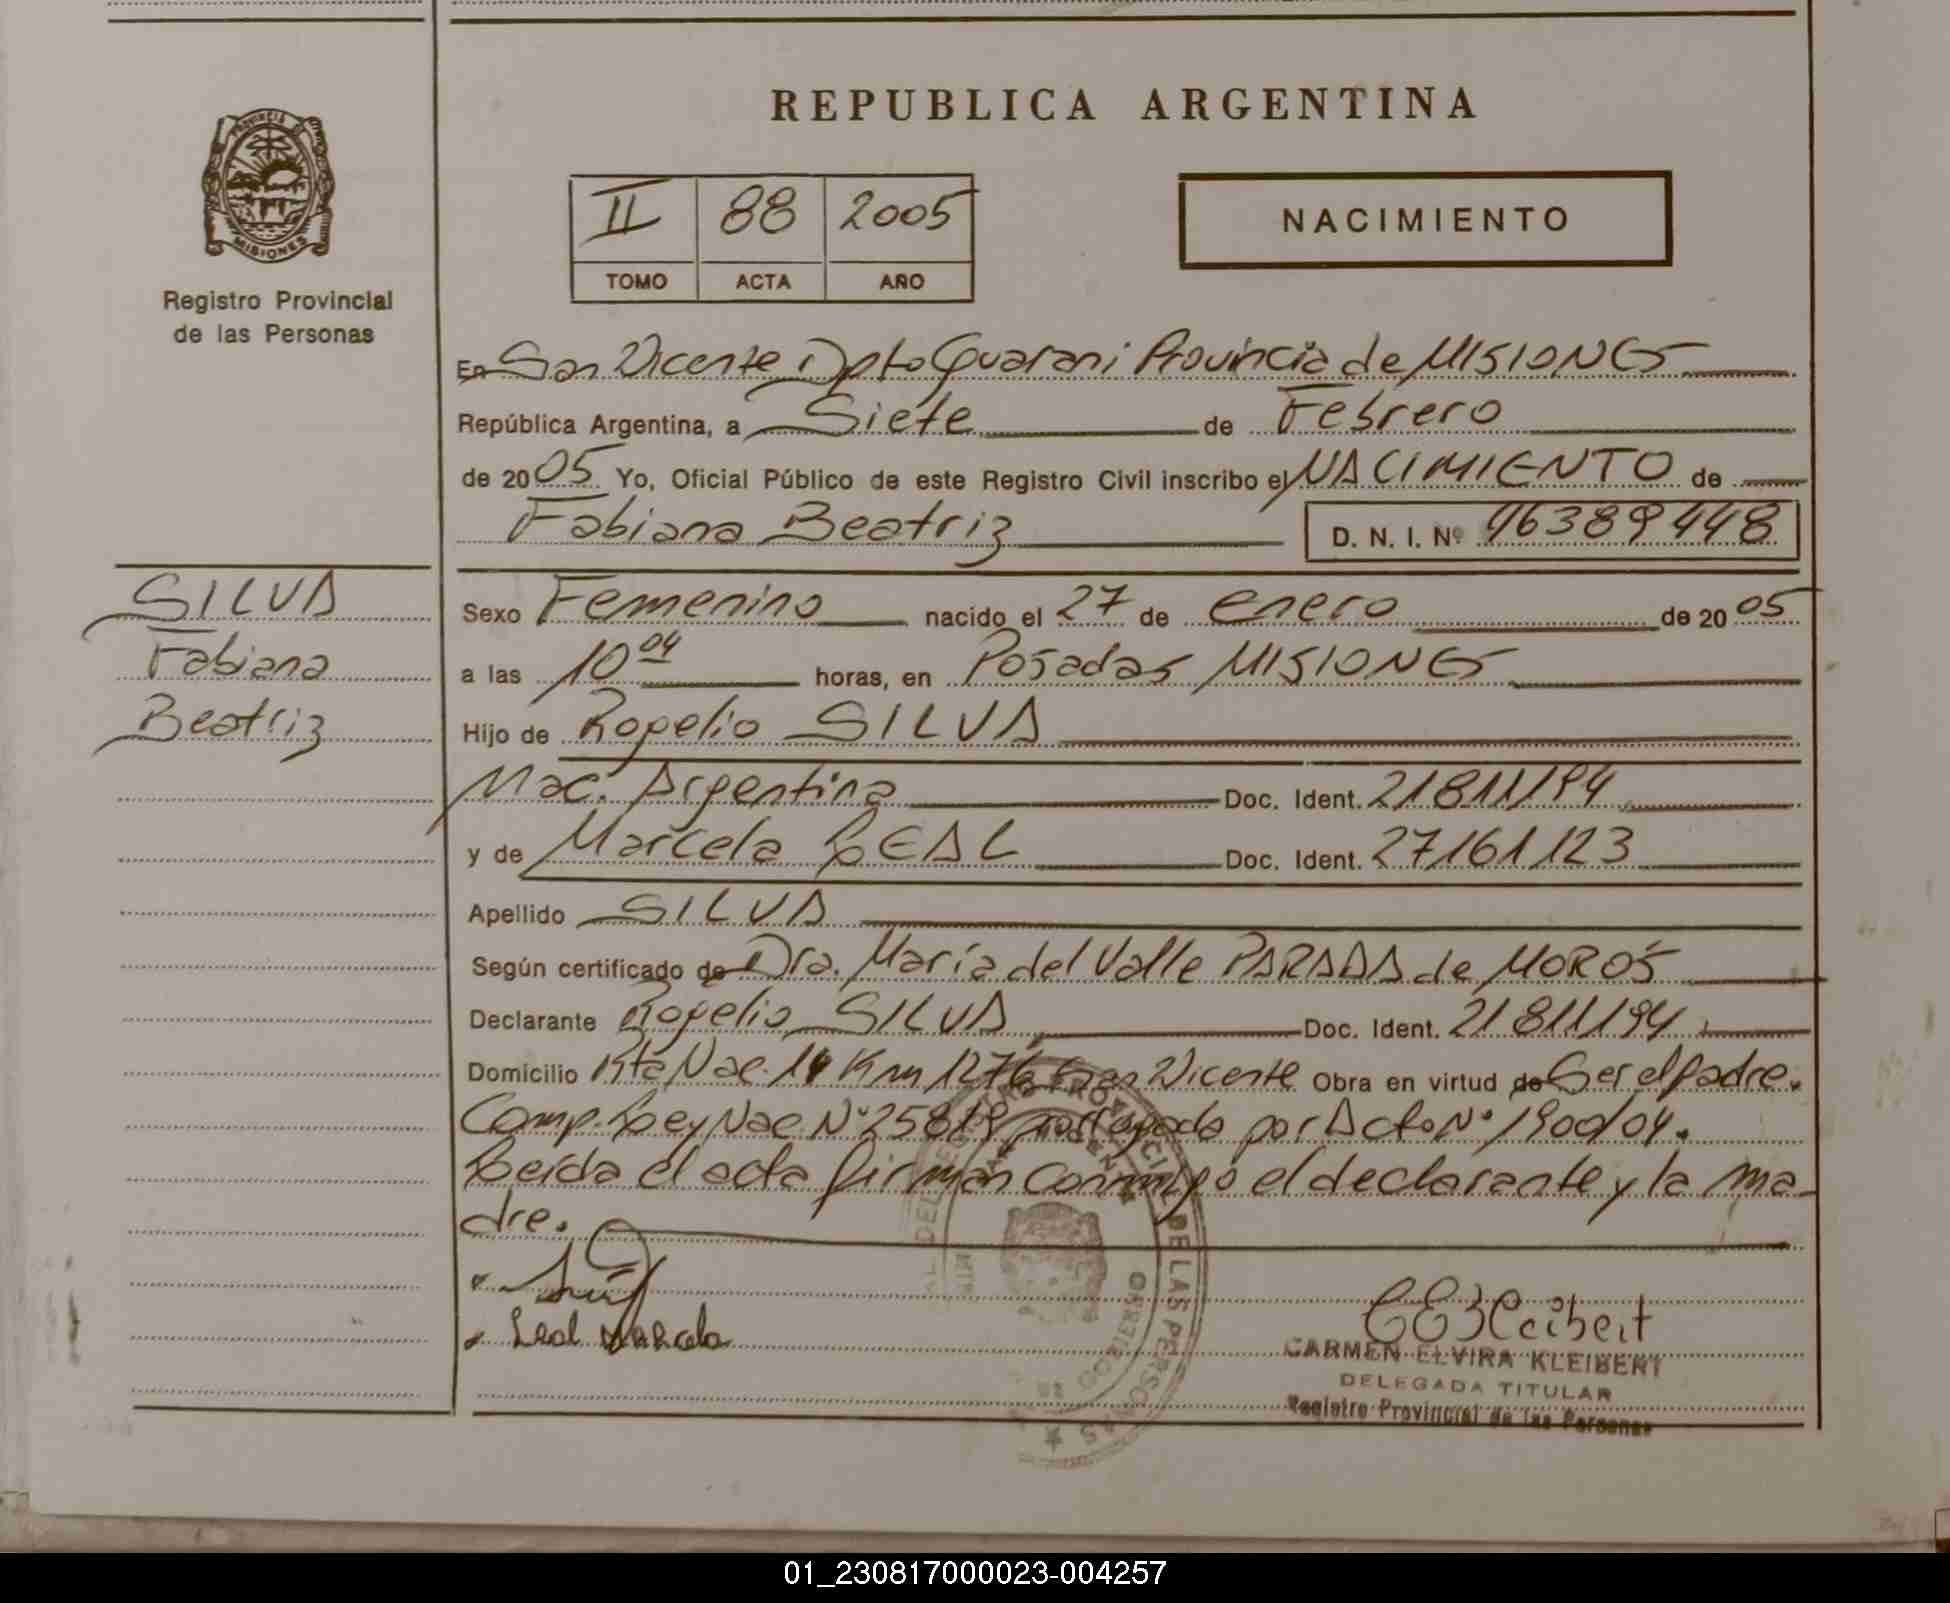 REPUBLICA ARGENTINA
PROVINCIA DE
MISIONES
Registro Provincial
de las Personas
II 88 2005
TOMO ACTA AÑO
NACIMIENTO
En San Vicente Dpto Guarani Provincia de MISIONES
República Argentina, a Siete de Febrero
de 2005 Yo, Oficial Público de este Registro Civil inscribo el NACIMIENTO de
Fabiana Beatriz D. N. I. Nº 46389448
SILVA
Fabiana
Beatriz
Sexo Femenino nacido el 27 de enero de 2005
a las 10 04 horas, en Posadas MISIONES
Hijo de Rogelio SILVA
Nac. Argentina Doc. Ident. 21811194
y de Marcela LEAL Doc. Ident. 27161123
Apellido SILVA
Según certificado de Dra. María del Valle PARADA de MOROS
Declarante Rogelio SILVA Doc. Ident. 21811194
Domicilio Rta Nac. 14 Km 1276 San Vicente Obra en virtud de Ser el padre.
Comp. Ley Nac. Nº 25819 prorrogado por Dcto Nº 1900/04.
Leída el acta firman conmigo el declarante y la ma-
dre.
Leal Marcela
CEKleibert
CARMEN ELVIRA KLEIBERT
DELEGADA TITULAR
Registro Provincial de las Personas
01_230817000023-004257